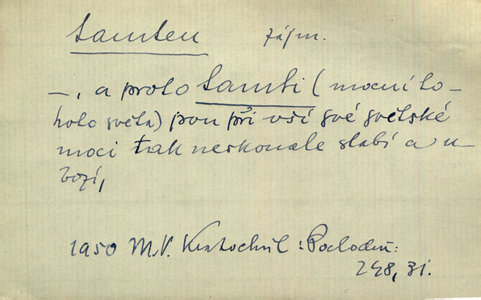 tamten zájm.
—, a proto tamti (mocní to-
hoto světa) jsou při vší své světské
moci tak neskonale slabí a u
bozí,
1950 M.V. Kratochvíl:
248, 31.